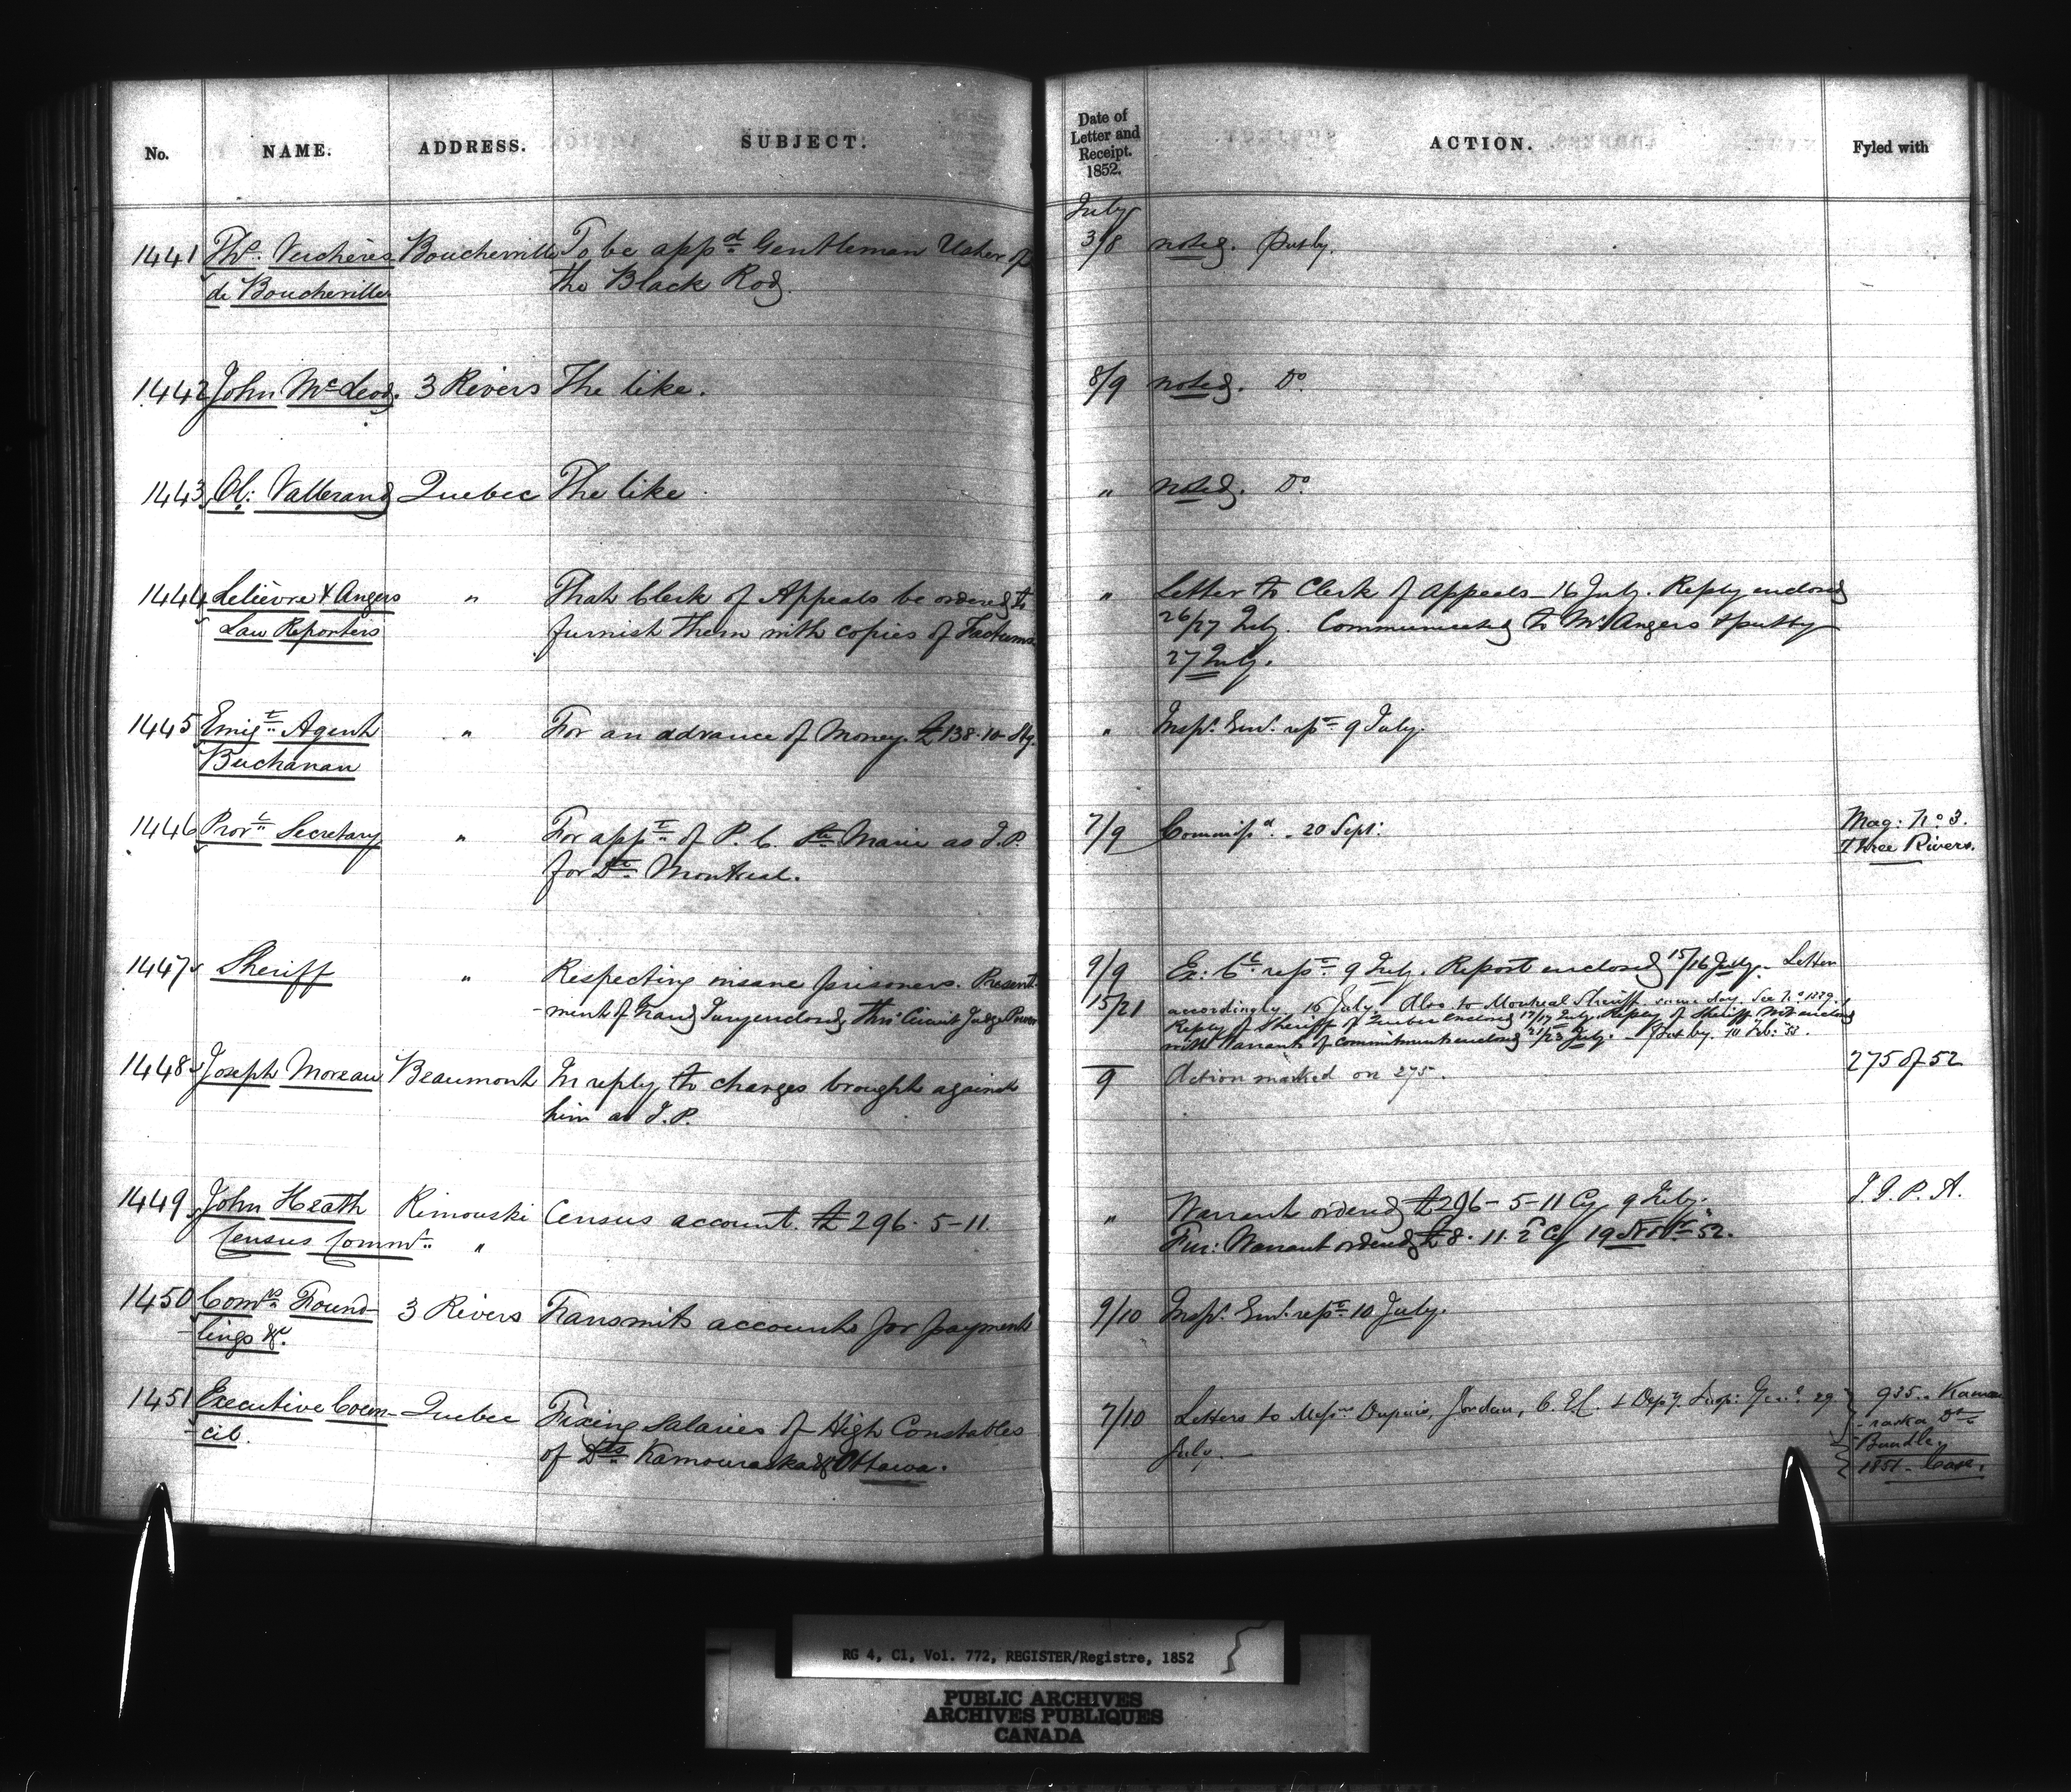 No. NAME. ADDRESS. SUBJECT. Date of Letter and Receipt. 1852. ACTION. Fyled with
July
1441 Ths. Verchères Boucherville To be appd. Gentleman Usher of 3/8 noted. Put by.
de Boucherville the Black Rod.
1442 John McLeod. 3 Rivers The like. 8/9 noted. Do.
1443 Ol: Vallerand Quebec The like. " noted. Do.
1444 Lelièvre & Angers " That Clerk of Appeals be ordered to " Letter to Clerk of Appeals 16 July. Reply enclosed
Law Reporters furnish them with copies of Factums 26/27 July. Communicated to Mr Angers & put by
27 July.
1445 Emigt. Agent " For an advance of Money. £138.10 Stg. " Insp. Genl. rept. 9 July.
Buchanan
1446 Provl. Secretary " For appt. of P. C. Ste. Marie as J.P. 7/9 Commissd. 20 Sept: Mag: No 3.
for Dt. Montreal. Three Rivers.
1447 Sheriff " Respecting insane prisoners. Present- 9/9 Ex: Cl. rept. 9 July. Report enclosed 15/16 July. Letter
-ment of Grand Jury enclosed thro' Circuit Judge Power 15/21 accordingly 16 July. Also to Montreal Sheriff same day. See No 1229.
Reply of Sheriff of Quebec enclosed 17/17 July. Reply of Sheriff Mtl enclosed
with warrants of commitment enclosed 21/23 July. Put by. 10 Feb: 53.
1448 Joseph Moreau Beaumont In reply to charges brought against 9 Action marked on 275. 275 of 52
him as J.P.
1449 John Heath Rimouski Census account. £296-5-11. " Warrant ordered £296-5-11 Cy 9 July. J. J. P. A.
Census Commr. " Fur: Warrant ordered £8.11.2 Cy 19 Novr. 52.
1450 Comrs. Found- 3 Rivers Transmits accounts for payment 9/10 Insp. Genl. rept. 10 July.
-lings &c.
1451 Executive Coun- Quebec Fixing Salaries of High Constables 7/10 Letters to Messrs Dupuis, Jordan, C. E. C. & Depy. Insp: Genl. 29 935. Kamou
-cil. of Dts. Kamouraska & Ottawa. July. -raska Dt.
Bundle.
1851. Case.
RG 4, C1, Vol. 772, REGISTER/Registre, 1852
PUBLIC ARCHIVES
ARCHIVES PUBLIQUES
CANADA